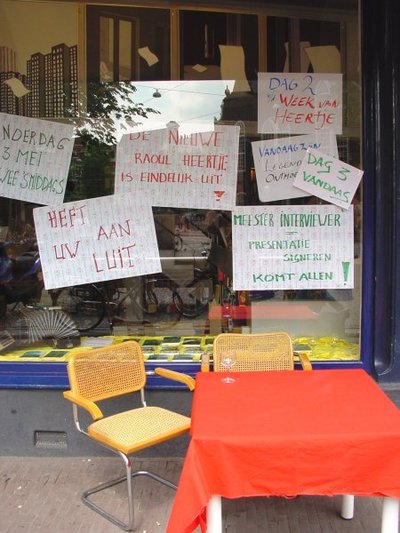 DAG 2
WEEK VAN
HEERTJE
NDERDAG
3 MEI
WEE 'S MIDDAGS
DE NIEUWE
RAOUL HEERTJE
IS EINDELIJK UIT !
VANDAAG
LEGEND
DAG 3
VANDAAG
HEFT AAN
UW LUIT
MEESTER INTERVIEWER
PRESENTATIE
SIGNEREN
KOMT ALLEN !